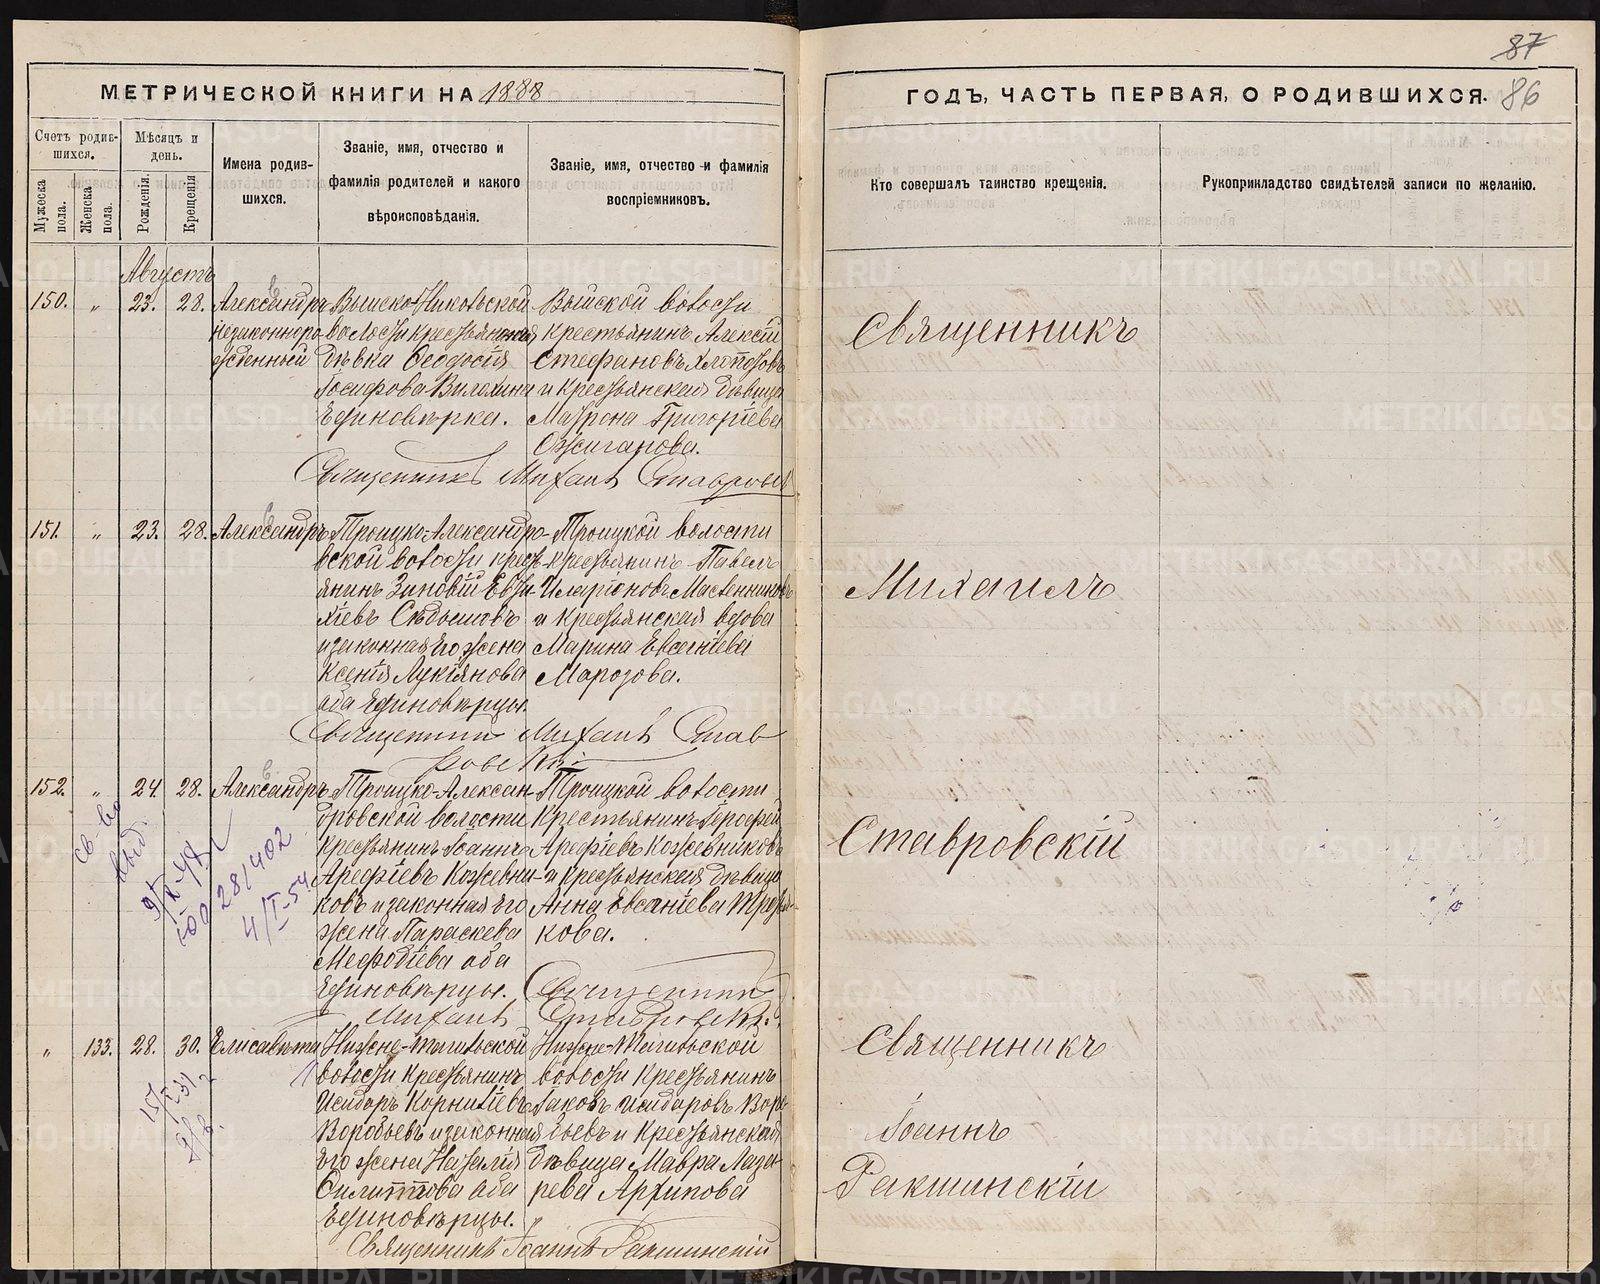 87
МЕТРИЧЕСКОЙ КНИГИ НА 1888
ГОДЪ, ЧАСТЬ ПЕРВАЯ, О РОДИВШИХСЯ. 86
Счетъ родив-
шихся.
Мужеска
пола.
Женска
пола.
Мѣсяцъ и
день.
Рожденія.
Крещенія
Имена родив-
шихся.
Званіе, имя, отчество и
фамилія родителей и какого
вѣроисповѣданія.
Званіе, имя, отчество и фамилія
воспріемниковъ.
Кто совершалъ таинство крещенія.
Рукоприкладство свидѣтелей записи по желанію.
Августъ
150. " 23. 28. Александръ
незаконноро-
жденный
Выйско-Никольской
волости крестьянская
дѣвка Ѳеодосія
Іосифова
Единовѣрка.
Выйской волости
крестьянинъ Алексій
Стефановъ
и крестьянская дѣвица
Матрона Григоріева
Ожиганова.
Священникъ Михаилъ Ставровскій
Священникъ
151. " 23. 28. Александръ
Троицко-Александро-
вской волости крест-
янинъ Зиновій Евти-
хіевъ
и законная его жена
Ксенія Лукіянова
оба Единовѣрцы.
Троицкой волости
крестьянинъ Павелъ
Иларіоновъ Масленниковъ
и крестьянская вдова
Марина Евсегніева
Марозова.
Священникъ Михаилъ Став
ровскій
Михаилъ
152. " 24. 28. Александръ
Троицко-Алексан-
дровской волости
крестьянинъ Іоаннъ
Арефіевъ Кожевни-
ковъ и законная его
жена Параскева
Меѳодіева оба
Единовѣрцы.
Троицкой волости
Крестьянинъ
Арефіевъ Кожевниковъ
и крестьянская дѣвица
Анна
кова.
Священникъ
Михаилъ Ставровскій
св-во
выд.
28/402
4/I-54
Ставровскій
" 133. 28. 30. Елисавета
Нижне-Тагильской
волости Крестьянинъ
Исидоръ Корниліевъ
Воробьевъ и законная
его жена Наталія
Филиппова оба
Единовѣрцы.
Нижне-Тагильской
волости Крестьянинъ
Іаковъ Исидоровъ Воро-
бьевъ и Крестьянская
дѣвица Мавра Лаза-
рева Архипова
Священникъ Іоаннъ Ракшинскій
Священникъ
Іоаннъ
Ракшинскій
METRIKI.GASO-URAL.RU